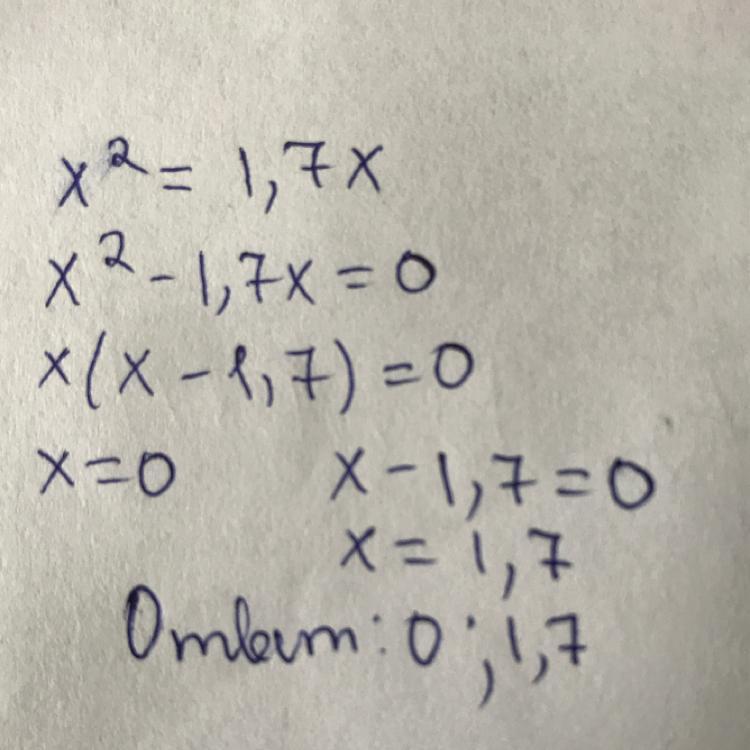 x² = 1,7x
x² - 1,7x = 0
x(x - 1,7) = 0
x = 0 x - 1,7 = 0
x = 1,7
Ответ: 0; 1,7